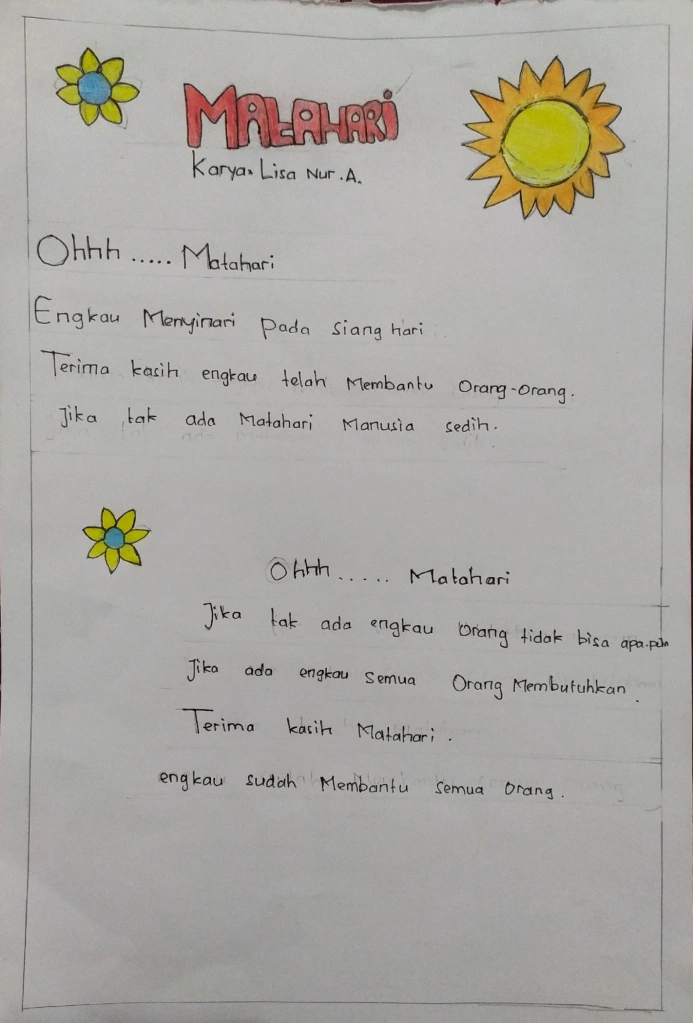 MAtAHARi
Karya: Lisa Nur.A.
Ohhh ..... Matahari
Engkau Menyinari pada siang hari
Terima kasih engkau telah Membantu Orang-orang.
Jika tak ada Matahari Manusia sedih.
Ohhh ..... Matahari
Jika tak ada engkau Orang tidak bisa apa-pun
Jika ada engkau semua Orang Membutuhkan.
Terima kasih Matahari.
engkau sudah Membantu semua Orang.